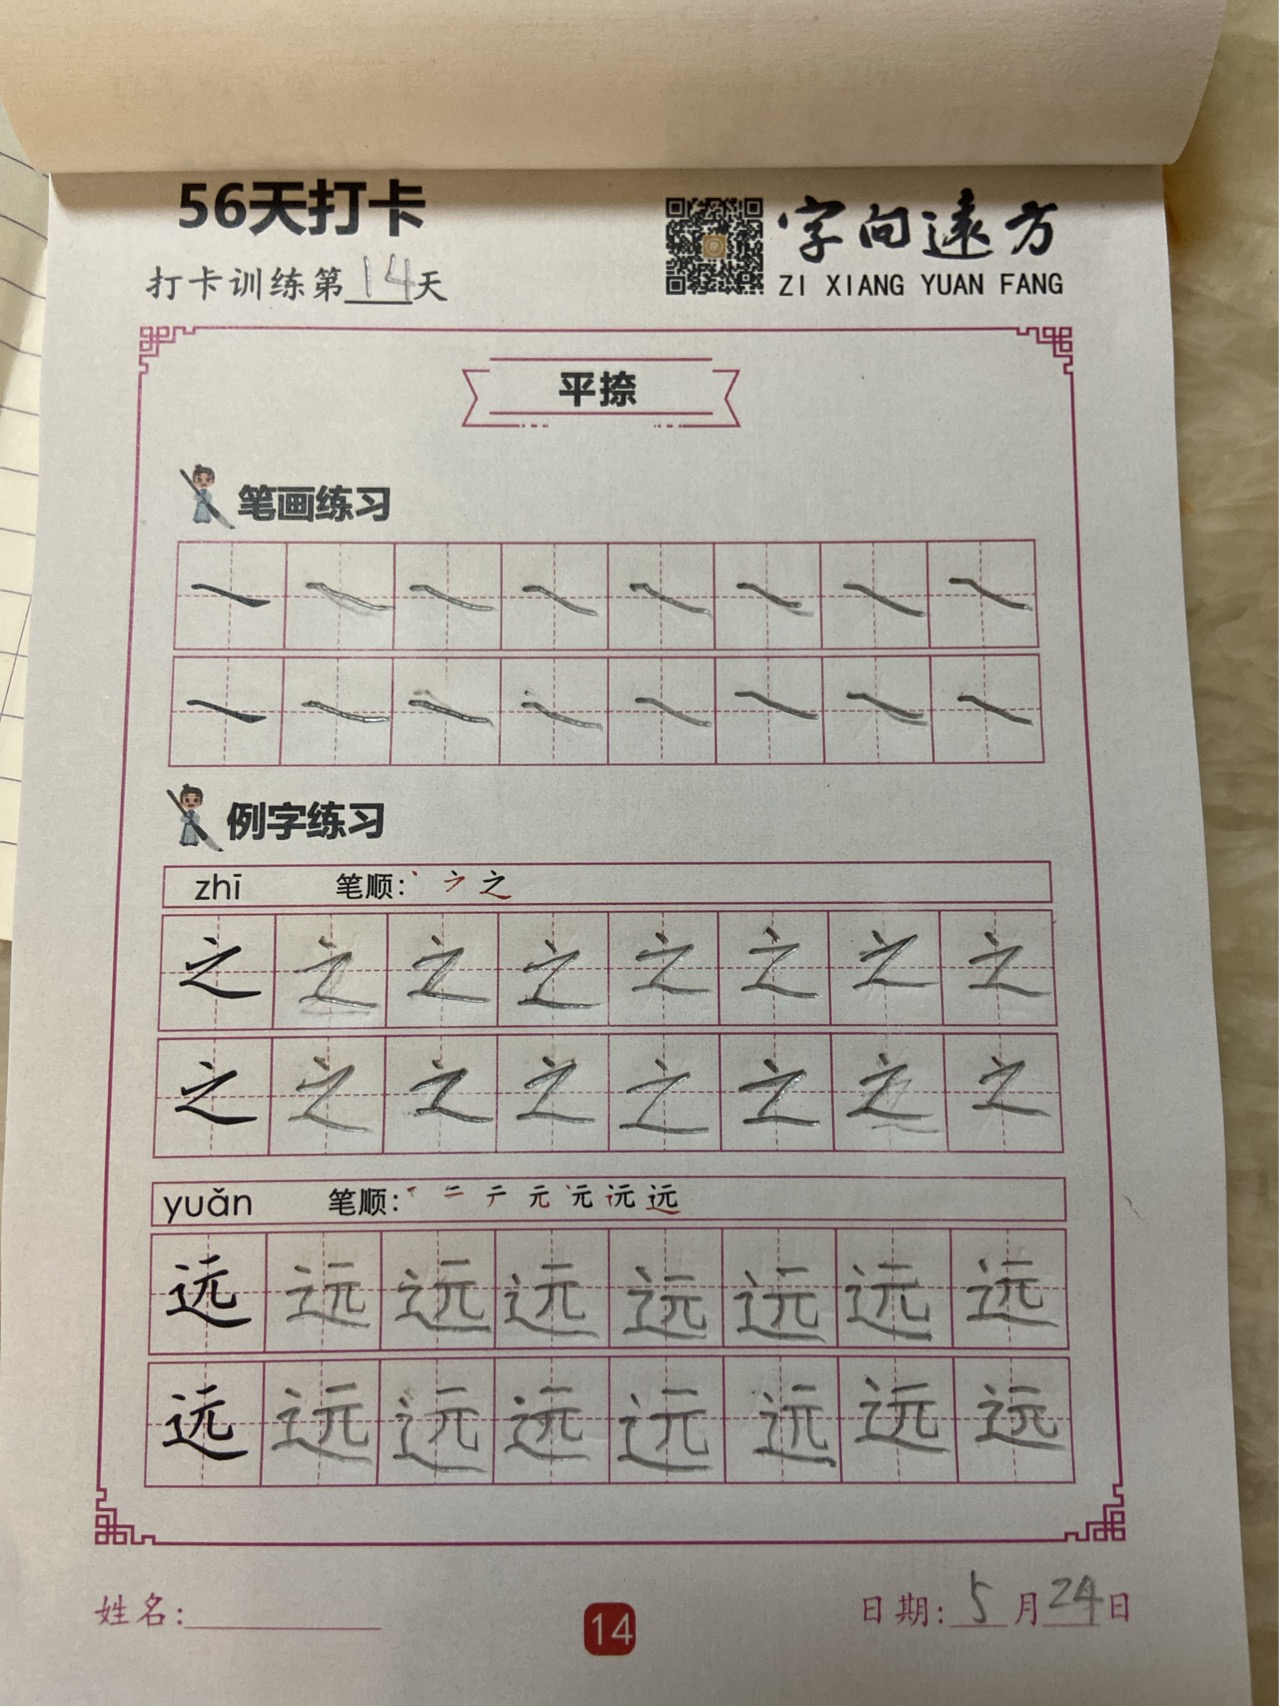 56天打卡
字向遠方
打卡训练第14天
ZI XIANG YUAN FANG
平捺
笔画练习
㇏ ㇏ ㇏ ㇏ ㇏ ㇏ ㇏ ㇏
㇏ ㇏ ㇏ ㇏ ㇏ ㇏ ㇏ ㇏
例字练习
zhī 笔顺: 之
之 之 之 之 之 之 之 之
之 之 之 之 之 之 之 之
yuǎn 笔顺: 二 元 远
远 远 远 远 远 远 远 远
远 远 远 远 远 远 远 远
姓名:
14
日期: 5月24日